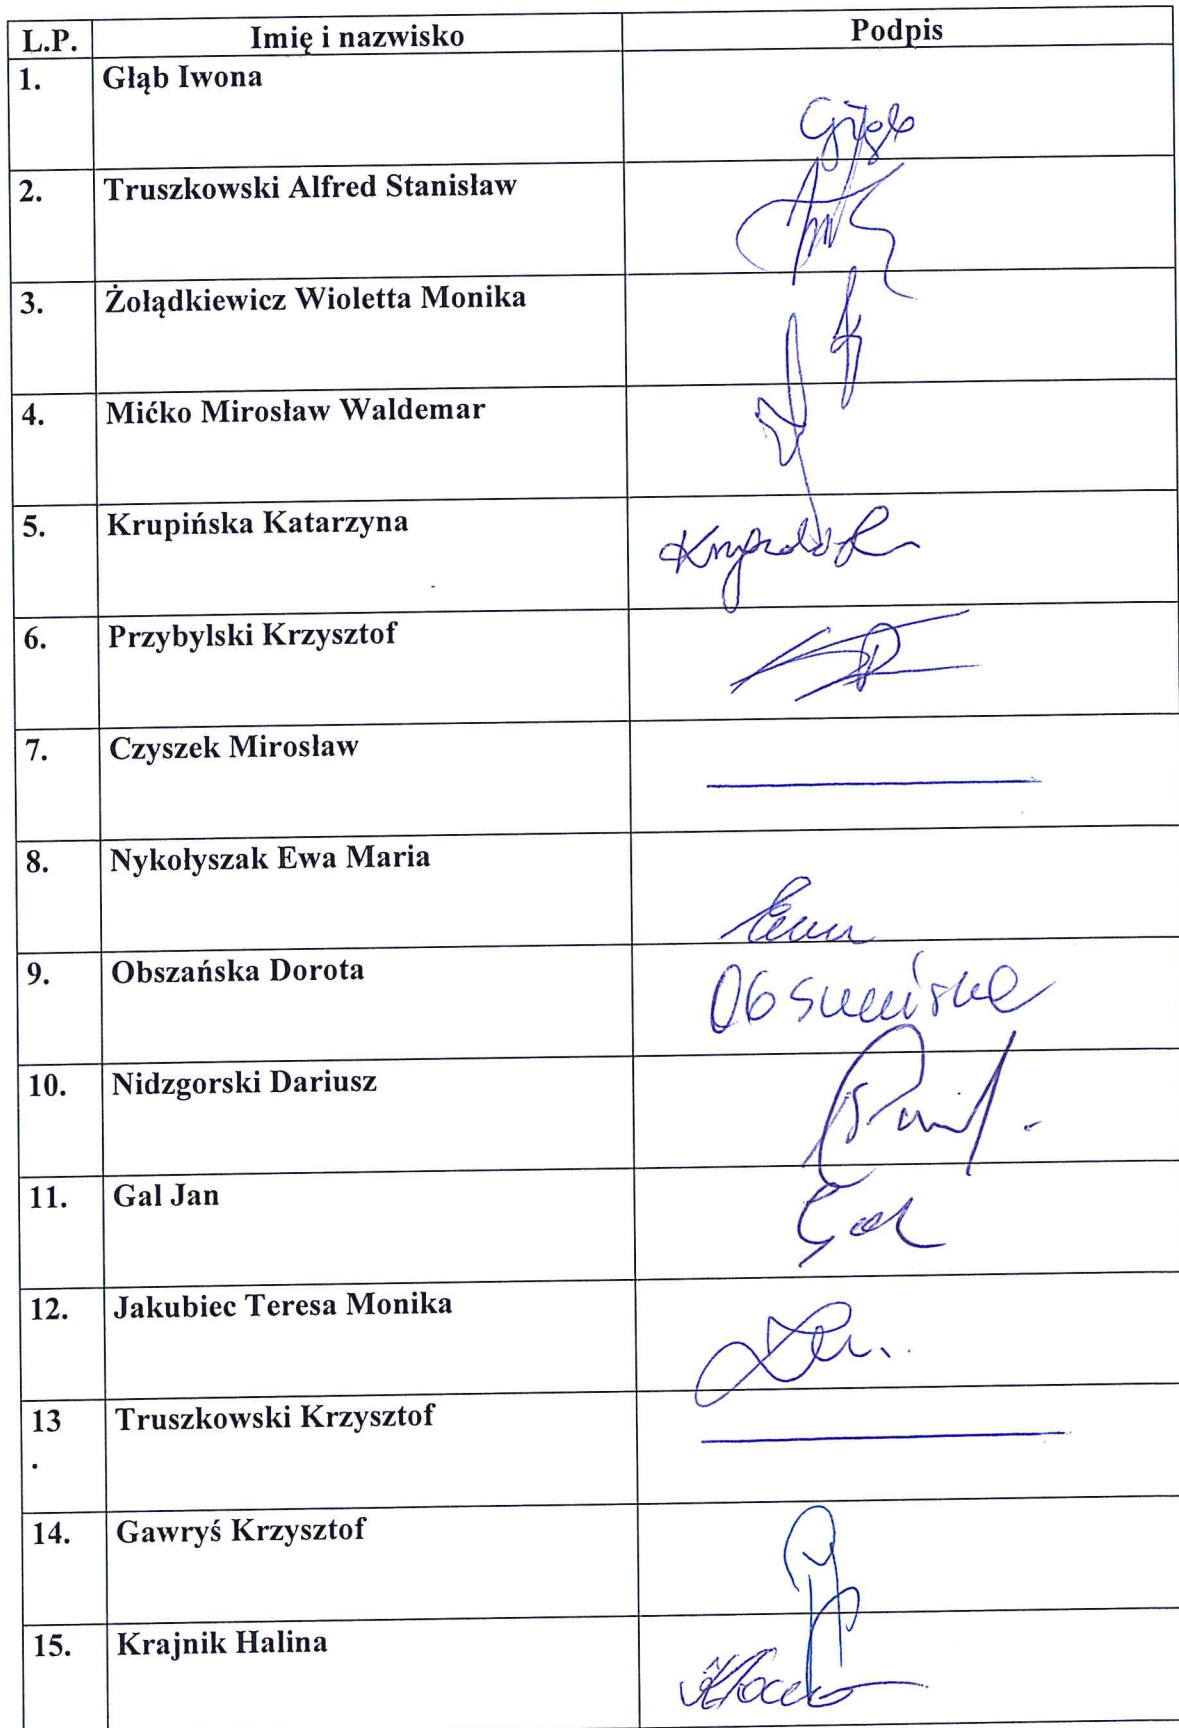 L.P. Imię i nazwisko Podpis
1. Głąb Iwona
Głąb
2. Truszkowski Alfred Stanisław
3. Żołądkiewicz Wioletta Monika
4. Mićko Mirosław Waldemar
5. Krupińska Katarzyna
6. Przybylski Krzysztof
7. Czyszek Mirosław
8. Nykołyszak Ewa Maria
9. Obszańska Dorota
10. Nidzgorski Dariusz
11. Gal Jan
Gal
12. Jakubiec Teresa Monika
13 Truszkowski Krzysztof
.
14. Gawryś Krzysztof
15. Krajnik Halina